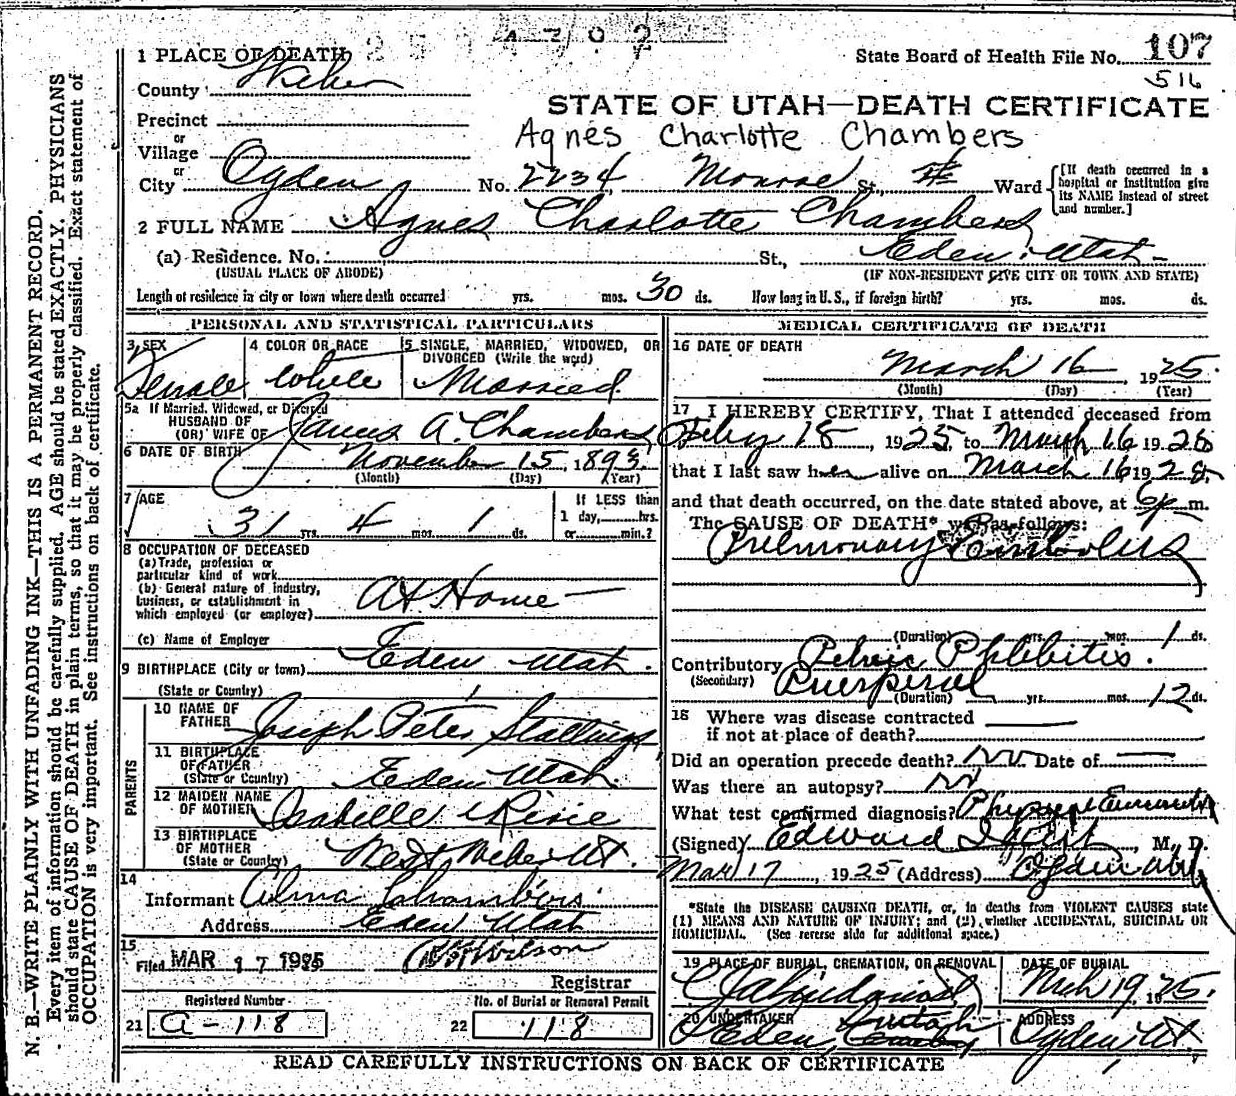 1 PLACE OF DEATH
State Board of Health File No. 107
516
County Weber
STATE OF UTAH—DEATH CERTIFICATE
Precinct
Agnes Charlotte Chambers
or
Village
or
City Ogden No. 2234 Monroe St., Ward
[If death occurred in a hospital or institution give its NAME instead of street and number.]
2 FULL NAME Agnes Charlotte Chambers
(a) Residence. No. St., Eden, Utah
(USUAL PLACE OF ABODE) (IF NON-RESIDENT GIVE CITY OR TOWN AND STATE)
Length of residence in city or town where death occurred yrs. mos. 30 ds. How long in U. S., if foreign birth? yrs. mos. ds.
PERSONAL AND STATISTICAL PARTICULARS
3 SEX 4 COLOR OR RACE 5 SINGLE, MARRIED, WIDOWED, OR
DIVORCED (Write the word)
Female White Married
5a If Married, Widowed, or Divorced
HUSBAND OF
(OR) WIFE OF James A. Chambers
6 DATE OF BIRTH November 15, 1893
(Month) (Day) (Year)
7 AGE If LESS than
31 yrs. 4 mos. 1 ds. 1 day,......hrs.
or......min.?
8 OCCUPATION OF DECEASED
(a) Trade, profession or
particular kind of work
(b) General nature of industry,
business, or establishment in At Home
which employed (or employer)
(c) Name of Employer
9 BIRTHPLACE (City or town) Eden Utah.
(State or Country)
PARENTS
10 NAME OF
FATHER Joseph Peter Stallings
11 BIRTHPLACE
OF FATHER Eden Utah.
(State or Country)
12 MAIDEN NAME
OF MOTHER Isabelle
13 BIRTHPLACE
OF MOTHER West Weber Ut.
(State or Country)
14
Informant Alma Chambers
Address Eden Utah
15
Filed MAR 17 1925 Wilson
Registrar
Registered Number No. of Burial or Removal Permit
21 A-118 22 118
MEDICAL CERTIFICATE OF DEATH
16 DATE OF DEATH
March 16 1925.
(Month) (Day) (Year)
17 I HEREBY CERTIFY, That I attended deceased from
Feby 18, 1925 to March 16 1925
that I last saw her alive on March 16 1925,
and that death occurred, on the date stated above, at 6 p m.
The CAUSE OF DEATH* was as follows:
Pulmonary Embolus
(Duration) yrs. mos. 1 ds.
Contributory Pelvic Phlebitis.
(Secondary) Puerperal
(Duration) yrs. mos. 12 ds.
18 Where was disease contracted
if not at place of death?
Did an operation precede death? No. Date of
Was there an autopsy? No
What test confirmed diagnosis? Physical
(Signed) Edward M. D.
Mar 17, 1925 (Address) Ogden Utah
*State the DISEASE CAUSING DEATH, or, in deaths from VIOLENT CAUSES state
(1) MEANS AND NATURE OF INJURY; and (2), whether ACCIDENTAL, SUICIDAL OR
HOMICIDAL. (See reverse side for additional space.)
19 PLACE OF BURIAL, CREMATION, OR REMOVAL DATE OF BURIAL
Mch 19, 1925.
20 UNDERTAKER ADDRESS
Eden Utah Ogden, Ut
READ CAREFULLY INSTRUCTIONS ON BACK OF CERTIFICATE
N. B.—WRITE PLAINLY WITH UNFADING INK—THIS IS A PERMANENT RECORD.
Every item of information should be carefully supplied. AGE should be stated EXACTLY. PHYSICIANS
should state CAUSE OF DEATH in plain terms, so that it may be properly classified. Exact statement of
OCCUPATION is very important. See instructions on back of certificate.